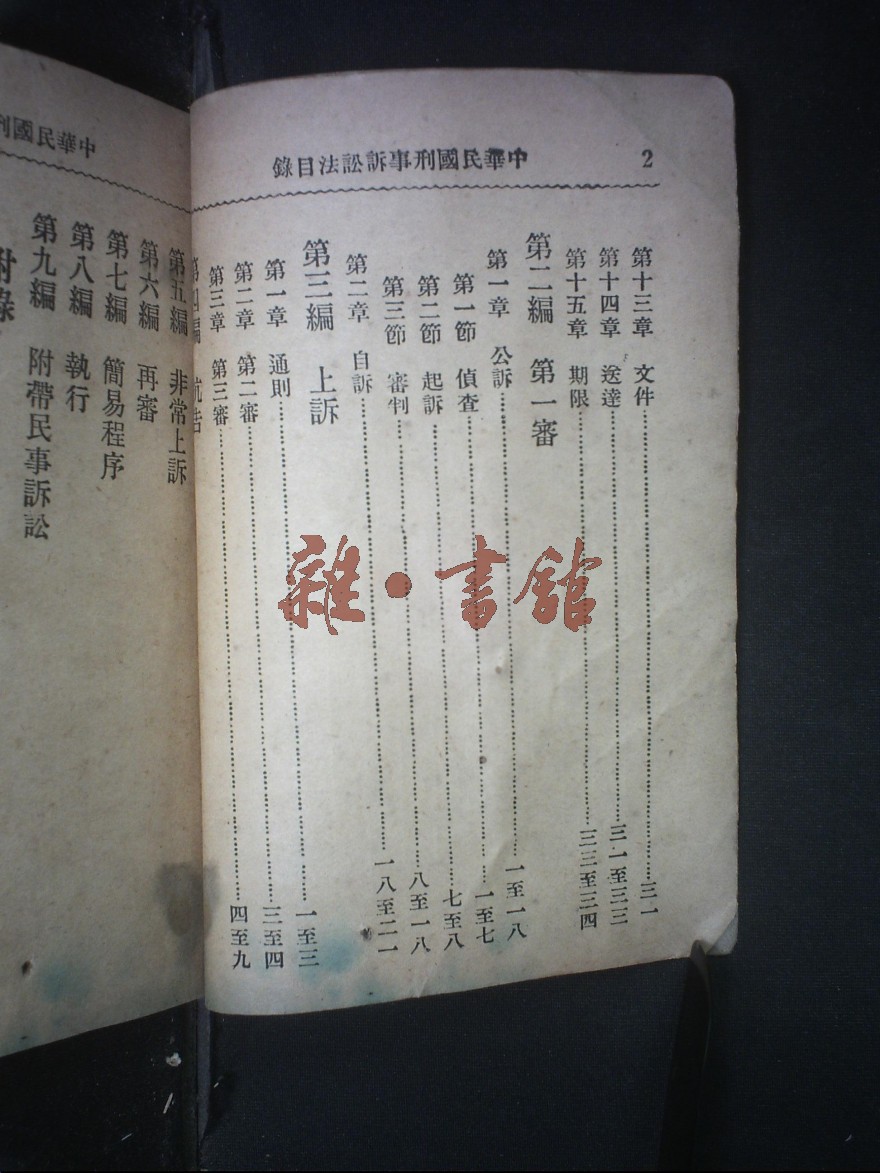 中華民國刑事訴訟法目錄 2
第十三章 文件 三一
第十四章 送達 三一至三三
第十五章 期限 三三至三四
第二編 第一審
第一章 公訴 一至一八
第一節 偵查 一至七
第二節 起訴 七至八
第三節 審判 八至一八
第二章 自訴 一八至二一
第三編 上訴
第一章 通則 一至三
第二章 第二審 三至四
第三章 第三審 四至九
第四編 抗告
中華民國刑
第五編 非常上訴
第六編 再審
第七編 簡易程序
第八編 執行
第九編 附帶民事訴訟
附錄
雜·書館